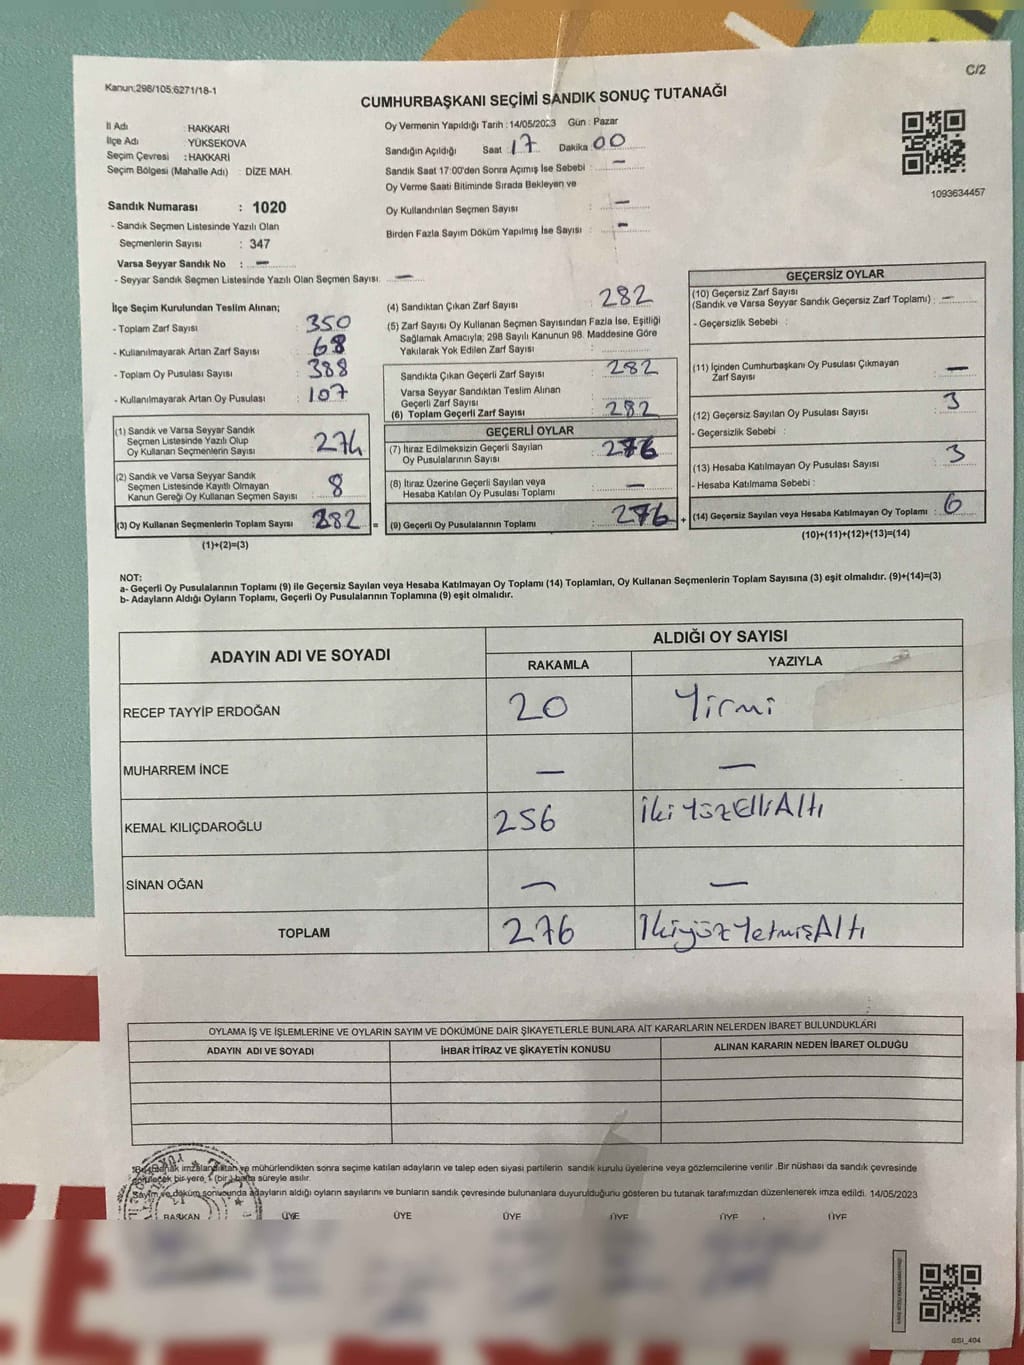 C/2
Kanun;298/105;6271/18-1
CUMHURBAŞKANI SEÇİMİ SANDIK SONUÇ TUTANAĞI
İl Adı : HAKKARİ
İlçe Adı : YÜKSEKOVA
Seçim Çevresi : HAKKARİ
Seçim Bölgesi (Mahalle Adı) : DİZE MAH.
Sandık Numarası : 1020
- Sandık Seçmen Listesinde Yazılı Olan
Seçmenlerin Sayısı : 347
Varsa Seyyar Sandık No : —
- Seyyar Sandık Seçmen Listesinde Yazılı Olan Seçmen Sayısı. —
Oy Vermenin Yapıldığı Tarih : 14/05/2023 Gün : Pazar
Sandığın Açıldığı Saat : 17 Dakika : 00
Sandık Saat 17:00'den Sonra Açımış İse Sebebi : —
Oy Verme Saati Bitiminde Sırada Bekleyen ve
Oy Kullandırılan Seçmen Sayısı : —
Birden Fazla Sayım Döküm Yapılmış İse Sayısı : —
1093634457
İlçe Seçim Kurulundan Teslim Alınan;
- Toplam Zarf Sayısı : 350
- Kullanılmayarak Artan Zarf Sayısı : 68
- Toplam Oy Pusulası Sayısı : 388
- Kullanılmayarak Artan Oy Pusulası : 107
(1) Sandık ve Varsa Seyyar Sandık
Seçmen Listesinde Yazılı Olup
Oy Kullanan Seçmenlerin Sayısı : 274
(2) Sandık ve Varsa Seyyar Sandık
Seçmen Listesinde Kayıtlı Olmayan
Kanun Gereği Oy Kullanan Seçmen Sayısı : 8
(3) Oy Kullanan Seçmenlerin Toplam Sayısı : 282 =
(1)+(2)=(3)
(4) Sandıktan Çıkan Zarf Sayısı : 282
(5) Zarf Sayısı Oy Kullanan Seçmen Sayısından Fazla İse, Eşitliği
Sağlamak Amacıyla; 298 Sayılı Kanunun 98. Maddesine Göre
Yakılarak Yok Edilen Zarf Sayısı :
Sandıkta Çıkan Geçerli Zarf Sayısı : 282
Varsa Seyyar Sandıktan Teslim Alınan
Geçerli Zarf Sayısı :
(6) Toplam Geçerli Zarf Sayısı : 282
GEÇERLİ OYLAR
(7) İtiraz Edilmeksizin Geçerli Sayılan
Oy Pusulalarının Sayısı : 276
(8) İtiraz Üzerine Geçerli Sayılan veya
Hesaba Katılan Oy Pusulası Toplamı : —
(9) Geçerli Oy Pusulalarının Toplamı : 276 +
GEÇERSİZ OYLAR
(10) Geçersiz Zarf Sayısı
(Sandık ve Varsa Seyyar Sandık Geçersiz Zarf Toplamı) : —
- Geçersizlik Sebebi :
(11) İçinden Cumhurbaşkanı Oy Pusulası Çıkmayan
Zarf Sayısı : —
(12) Geçersiz Sayılan Oy Pusulası Sayısı : 3
- Geçersizlik Sebebi :
(13) Hesaba Katılmayan Oy Pusulası Sayısı : 3
- Hesaba Katılmama Sebebi :
(14) Geçersiz Sayılan veya Hesaba Katılmayan Oy Toplamı : 6
(10)+(11)+(12)+(13)=(14)
NOT:
a- Geçerli Oy Pusulalarının Toplamı (9) ile Geçersiz Sayılan veya Hesaba Katılmayan Oy Toplamı (14) Toplamları, Oy Kullanan Seçmenlerin Toplam Sayısına (3) eşit olmalıdır. (9)+(14)=(3)
b- Adayların Aldığı Oyların Toplamı, Geçerli Oy Pusulalarının Toplamına (9) eşit olmalıdır.
ADAYIN ADI VE SOYADI
ALDIĞI OY SAYISI
RAKAMLA YAZIYLA
RECEP TAYYİP ERDOĞAN 20 Yirmi
MUHARREM İNCE — —
KEMAL KILIÇDAROĞLU 256 İki Yüz Elli Altı
SİNAN OĞAN — —
TOPLAM 276 İkiyüz Yetmiş Altı
OYLAMA İŞ VE İŞLEMLERİNE VE OYLARIN SAYIM VE DÖKÜMÜNE DAİR ŞİKAYETLERLE BUNLARA AİT KARARLARIN NELERDEN İBARET BULUNDUKLARI
ADAYIN ADI VE SOYADI İHBAR İTİRAZ VE ŞİKAYETİN KONUSU ALINAN KARARIN NEDEN İBARET OLDUĞU
tutanak imzalandıktan ve mühürlendikten sonra seçime katılan adayların ve talep eden siyasi partilerin sandık kurulu üyelerine veya gözlemcilerine verilir .Bir nüshası da sandık çevresinde
görülecek bir yere 1 (bir) hafta süreyle asılır.
Sayım ve döküm sonucunda adayların aldığı oyların sayılarını ve bunların sandık çevresinde bulunanlara duyurulduğunu gösteren bu tutanak tarafımızdan düzenlenerek imza edildi. 14/05/2023
BAŞKAN ÜYE ÜYE ÜYE ÜYE ÜYE ÜYE
GSI_404